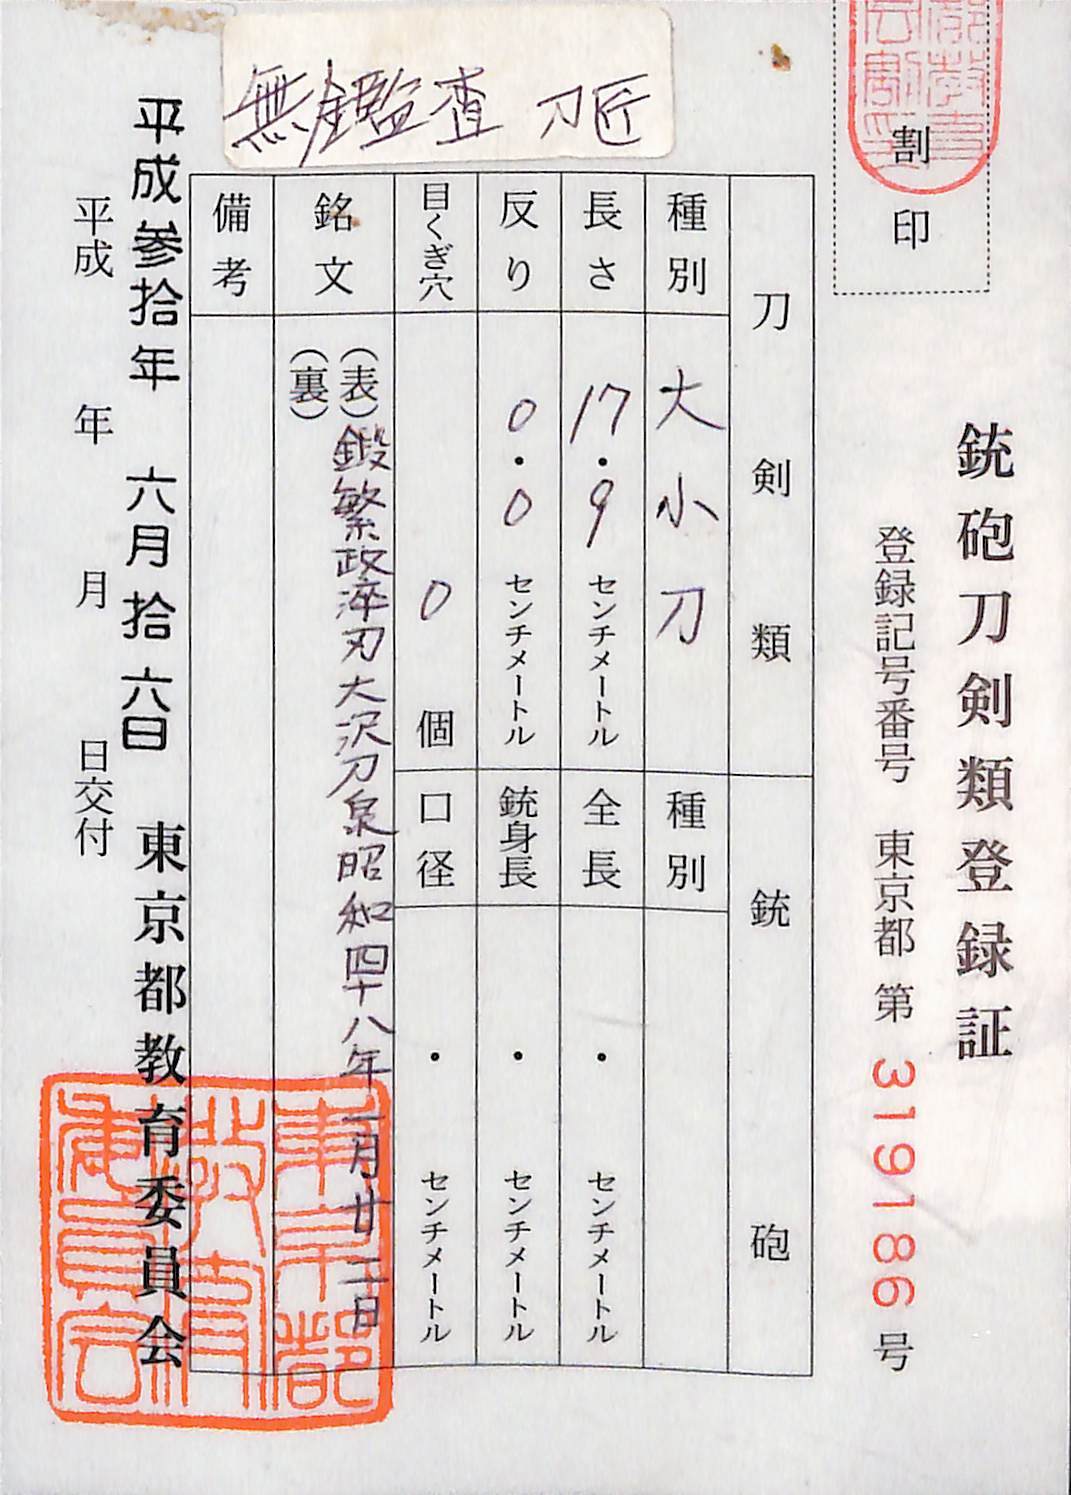 無鑑査 刀匠
割印
銃砲刀剣類登録証
登録記号番号 東京都 第 319186 号
刀剣類
銃砲
種別 大小刀
種別
長さ 17.9 センチメートル
全長 ・ センチメートル
反り 0.0 センチメートル
銃身長 ・ センチメートル
目くぎ穴 0 個
口径 ・ センチメートル
銘文
(表)鍛繁政淬刃大沢刀泉昭和四十八年一月廿二日
(裏)
備考
平成参拾年 六月拾六日 東京都教育委員会
平成 年 月 日交付
東京都教育委員会